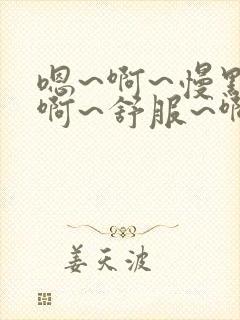 嗯~啊~慢
啊~舒服~
姜天波